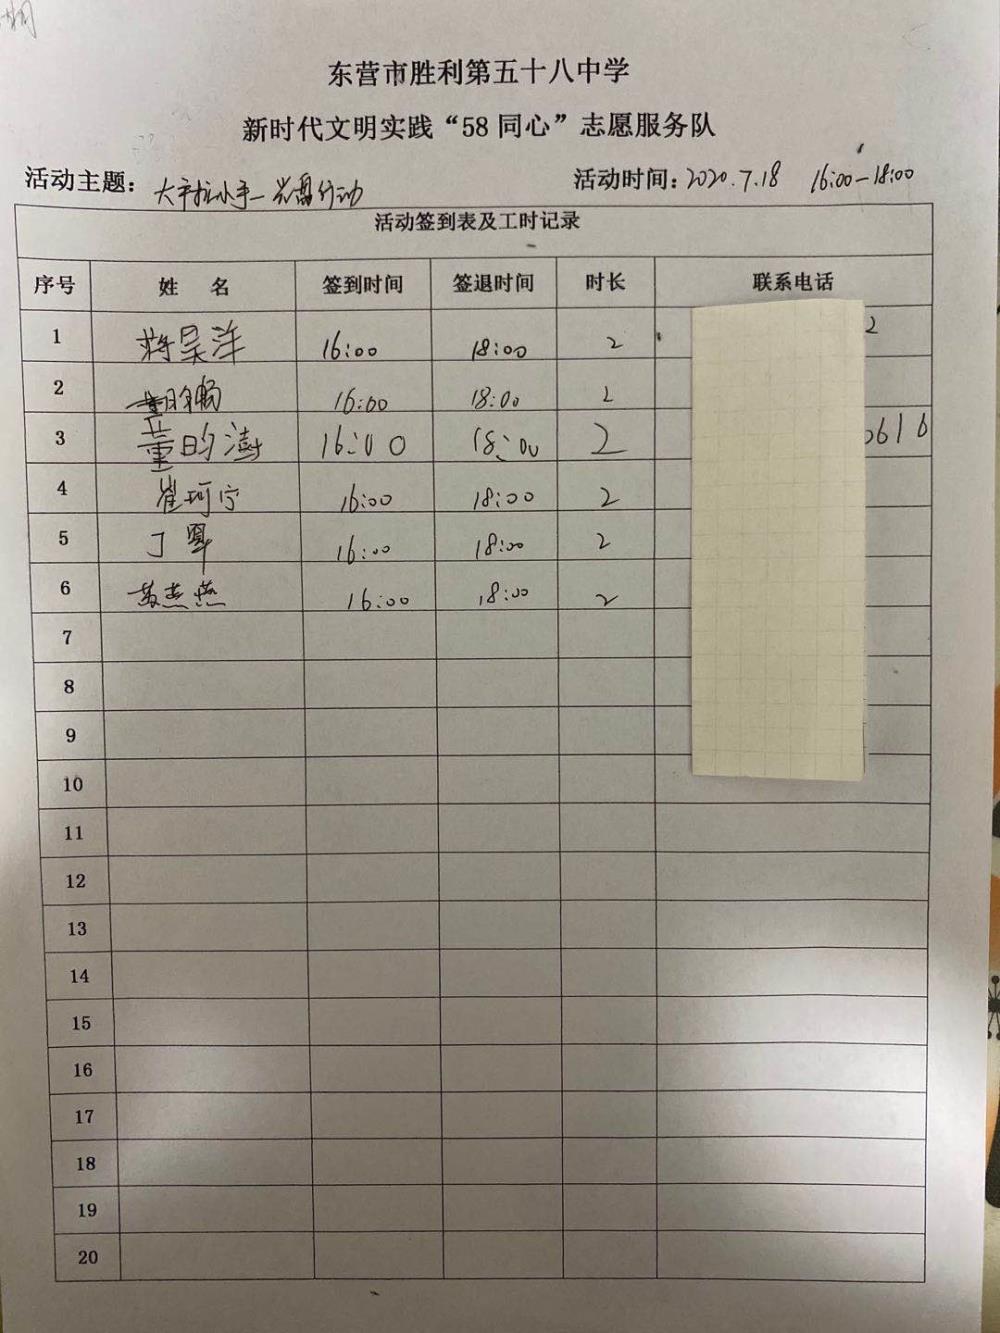 东营市胜利第五十八中学
新时代文明实践“58同心”志愿服务队
活动主题： 大手拉小手— 行动 活动时间：2020.7.18 16:00—18:00
活动签到表及工时记录
序号 姓 名 签到时间 签退时间 时长 联系电话
1 蒋昊洋 16:00 18:00 2 2
2 16:00 18:00 2
3 董昀澍 16:00 18:00 2 0616
4 崔珂宁 16:00 18:00 2
5 丁 16:00 18:00 2
6 燕 16:00 18:00 2
7
8
9
10
11
12
13
14
15
16
17
18
19
20